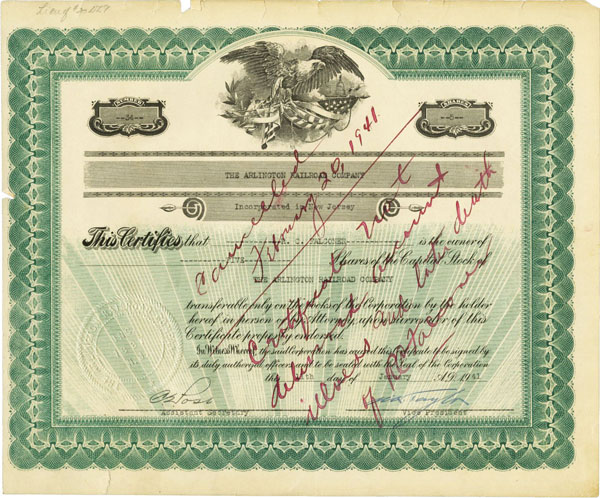 NUMBER
--34--
SHARES
--5--
THE ARLINGTON RAILROAD COMPANY
Incorporated in New Jersey
This Certifies that A. C. is the owner of
Shares of the Capital Stock of
THE ARLINGTON RAILROAD COMPANY
transferable only on the books of the Corporation by the holder
hereof in person or by Attorney, upon surrender of this
Certificate properly endorsed.
In Witness Whereof, the said Corporation has caused this Certificate to be signed by
its duly authorized officers and to be sealed with the Seal of the Corporation
this day of A.D. 1941
Assistant Secretary
Vice President
Cancelled
February 20, 1941.
Certificate not
on account
illness and later death
of